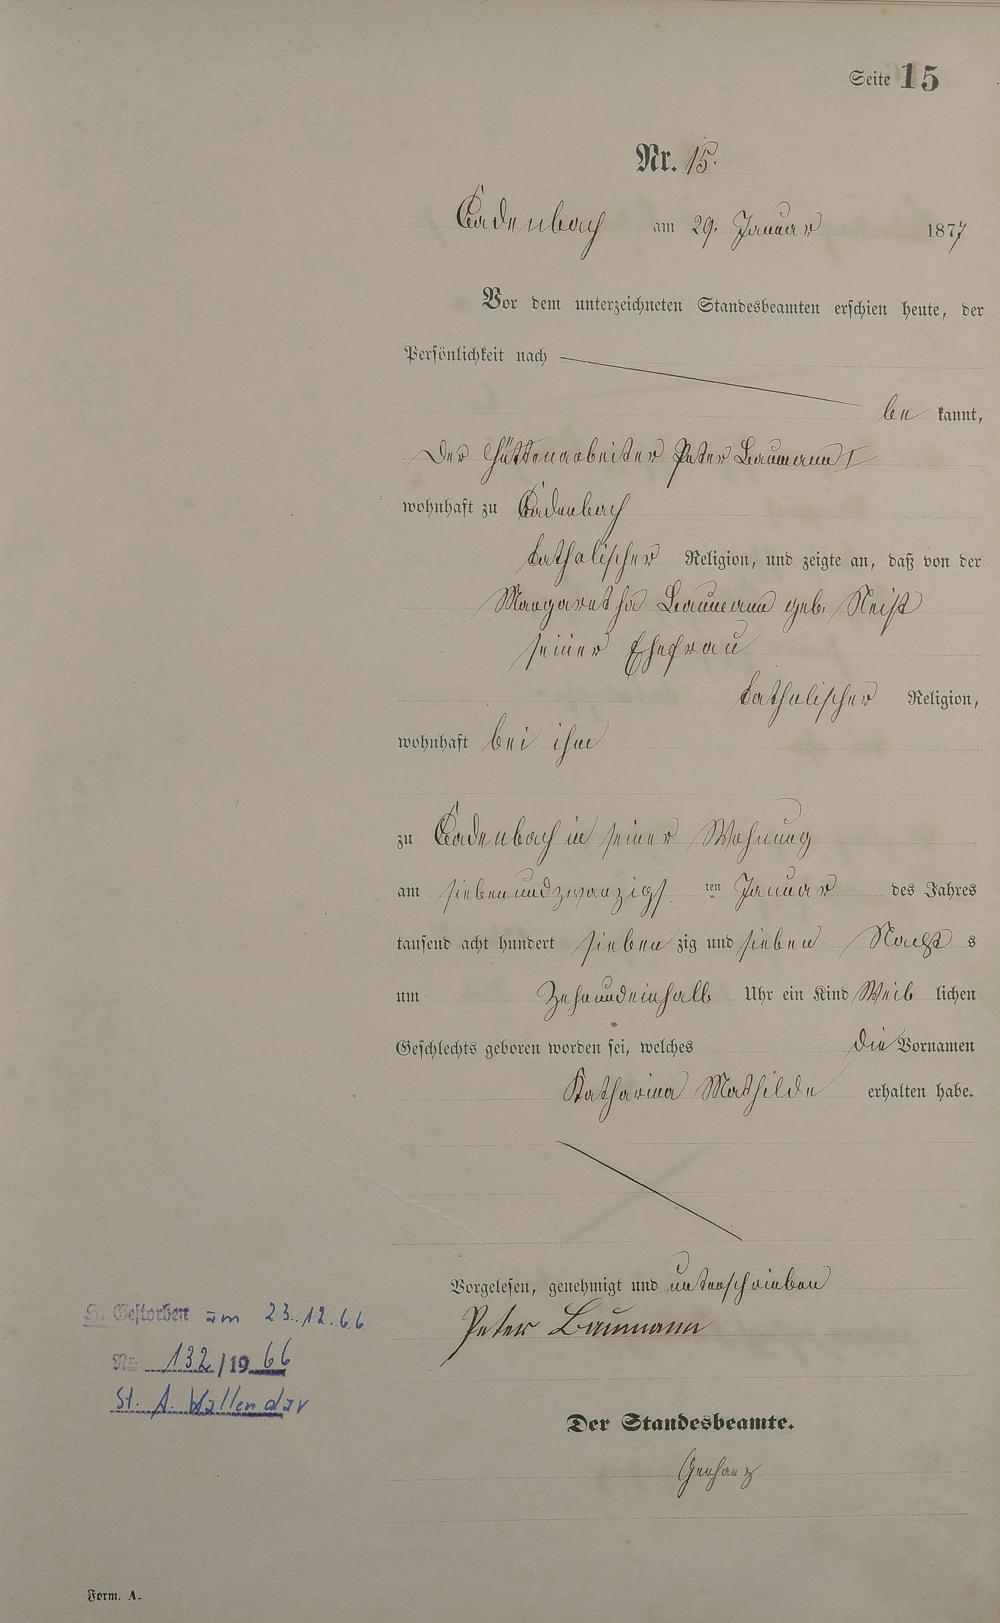 Seite 15
Nr. 15.
Cadenbach am 29. Januar 1877
Vor dem unterzeichneten Standesbeamten erschien heute, der
Persönlichkeit nach
be kannt,
der Hüttenarbeiter Peter Baumann I
wohnhaft zu Cadenbach
katholischer Religion, und zeigte an, daß von der
Margaretha Baumann geb. Neist
seiner Ehefrau
katholischer Religion,
wohnhaft bei ihm
zu Cadenbach in seiner Wohnung
am siebenundzwanzigs ten Januar des Jahres
tausend acht hundert sieben zig und sieben Nacht s
um Zehnundeinhalb Uhr ein Kind Weib lichen
Geschlechts geboren worden sei, welches die Vornamen
Katharina Mathilde erhalten habe.
Vorgelesen, genehmigt und unterschrieben
Peter Baumann
H. Gestorben am 23.12.66
Nr. 132/1966
St. A. Vallendar
Der Standesbeamte.
Form. A.